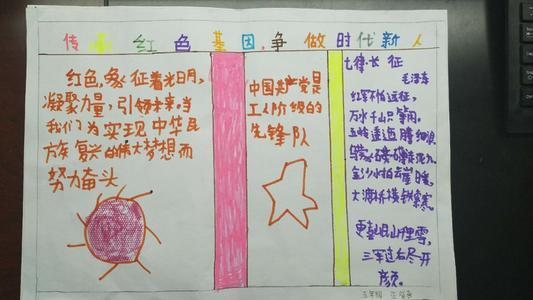 传承红色基因,争做时代新人
红色,象征着光明,
凝聚力量,引领未来。当
我们为实现中华民
族复兴的伟大梦想而
努力奋头
中国共产党是
工人阶级的
先锋队
七律·长征
毛泽东
红军不怕远征,
万水千山只等闲。
五岭逶迤腾细浪
乌蒙磅礴走泥丸
金沙水拍云崖暖,
大渡桥横铁索寒
更喜岷山千里雪,
三军过后尽开
颜。
五年级